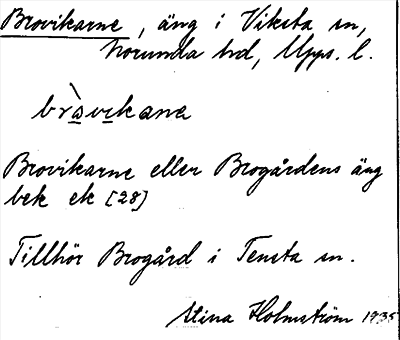 Brovikarne, äng i Viksta sn,
Norunda hd, Upps. l.
bròvikana
Brovikarne eller Brogårdens äng
bek ek [28]
Tillhör Brogård i Tensta sn.
Stina Holmström 1935